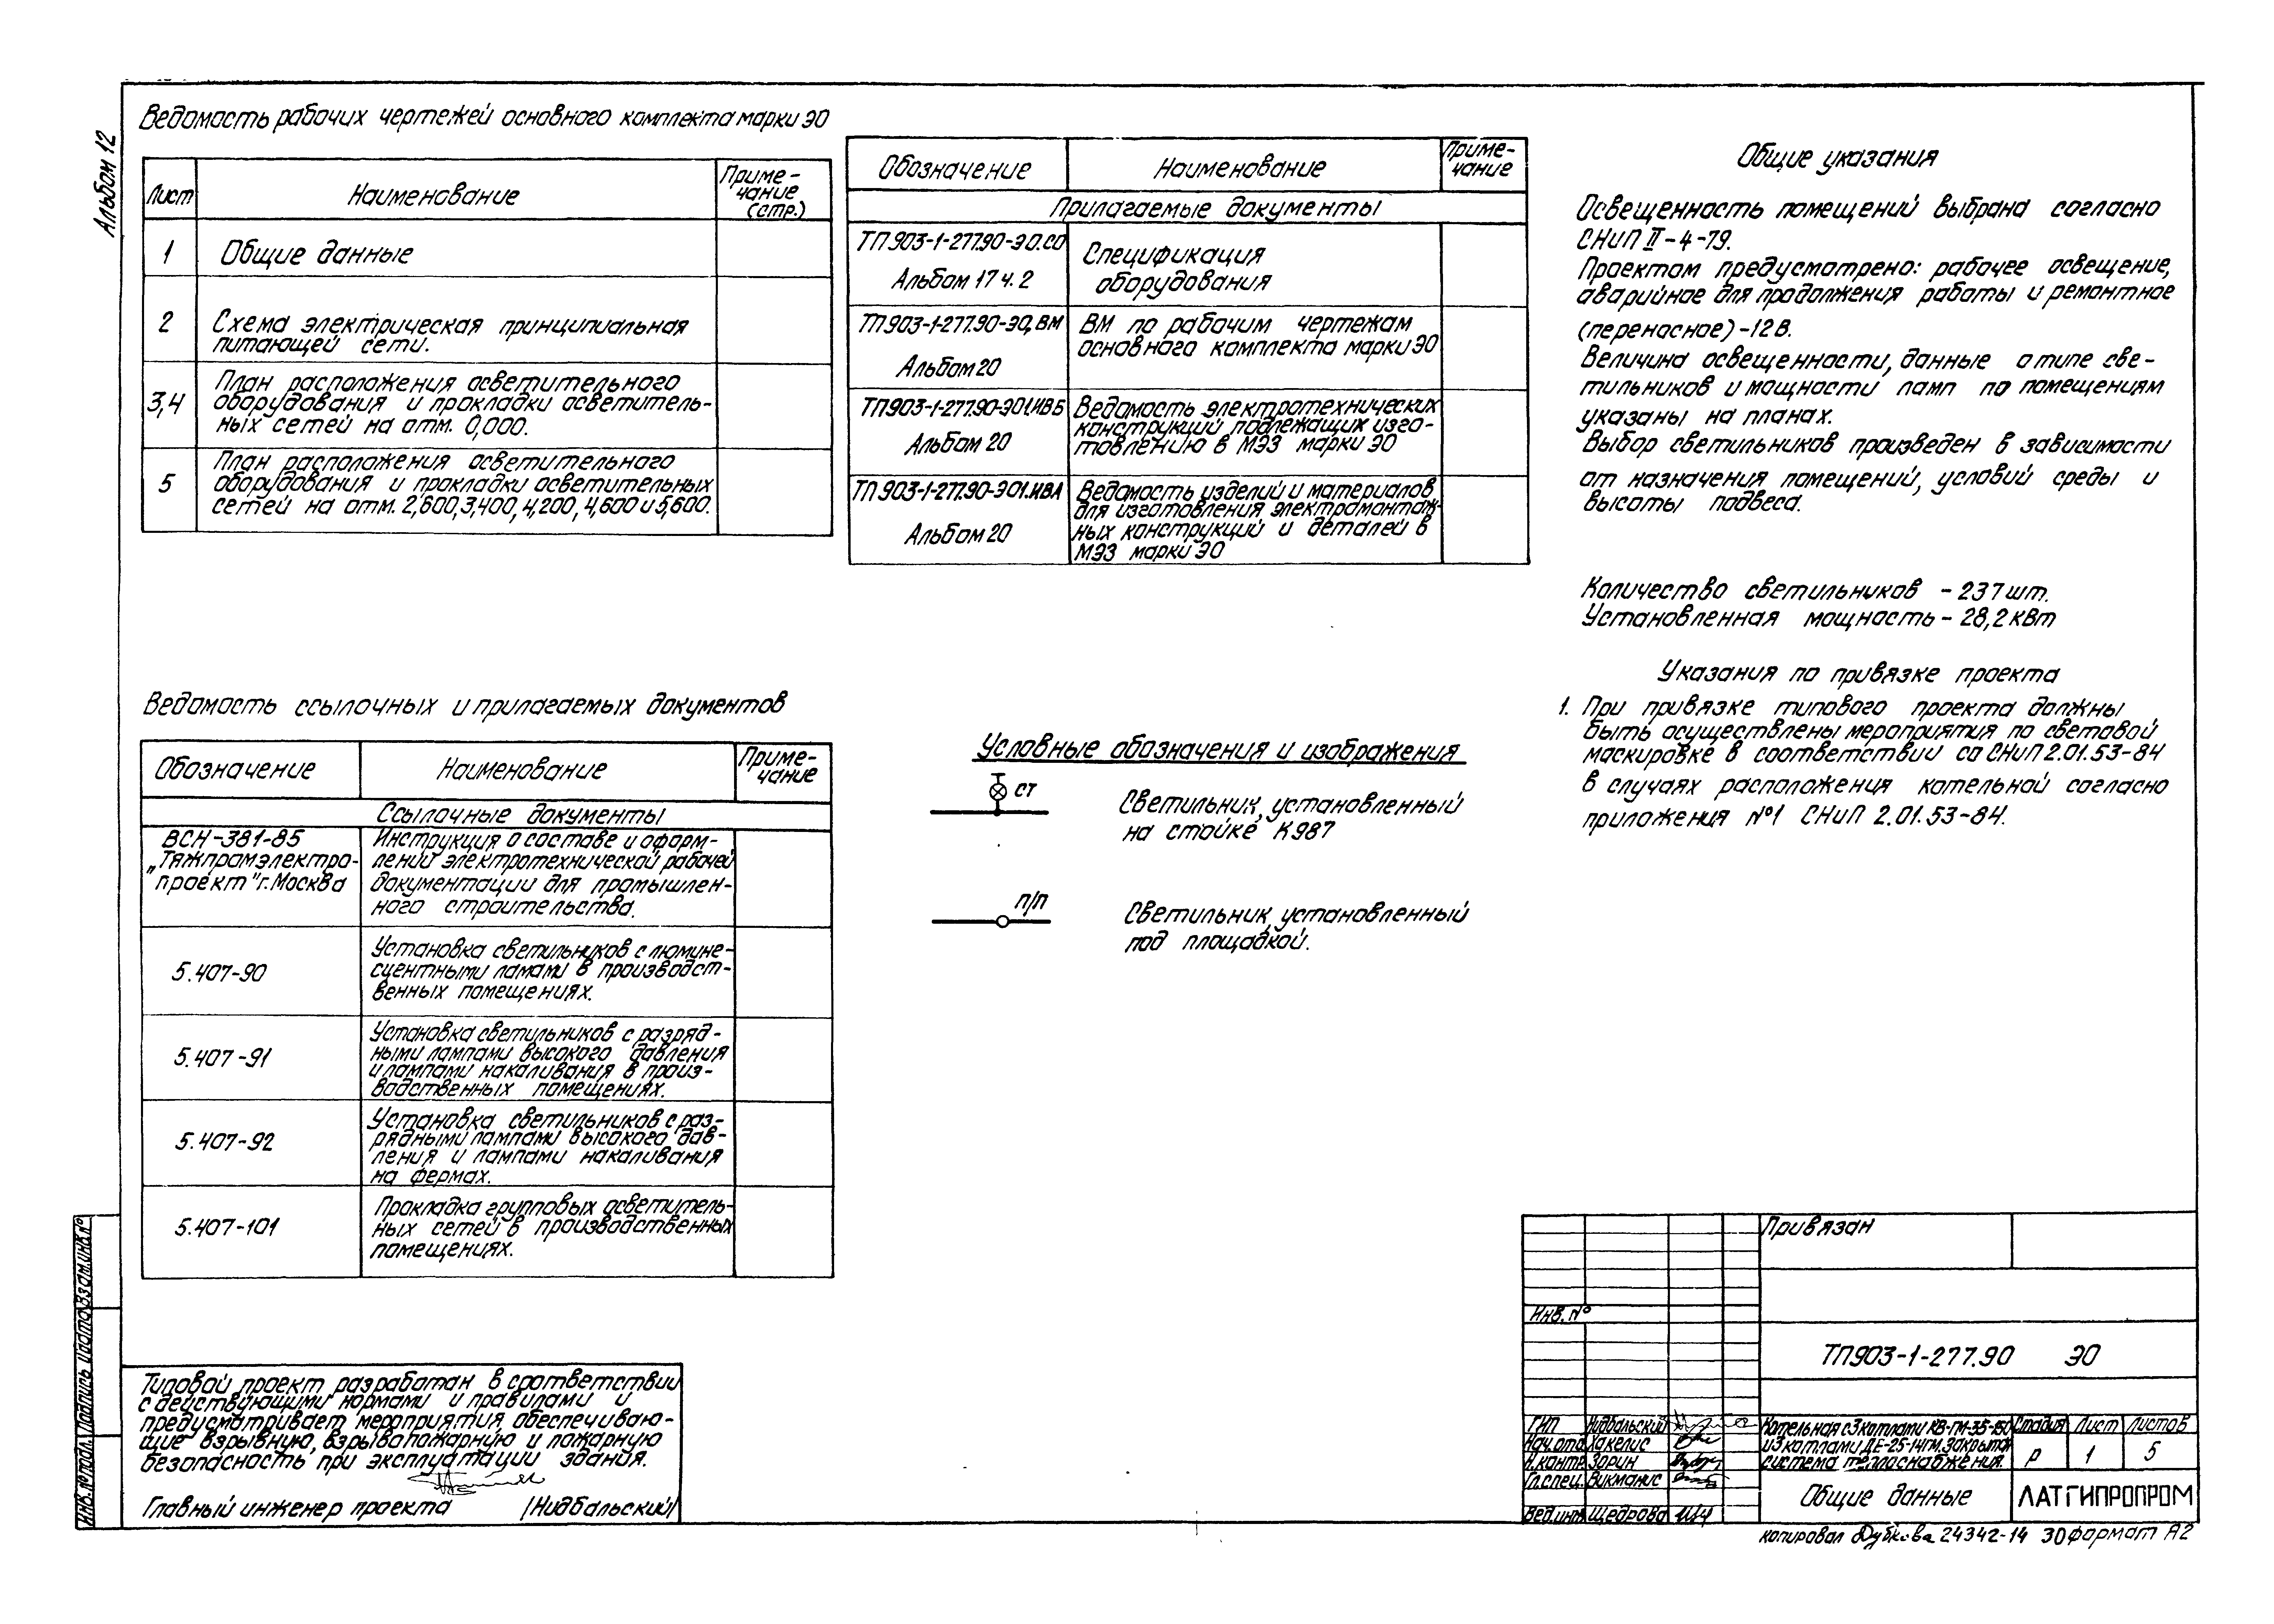 Альбом 12
Ведомость рабочих чертежей основного комплекта марки ЭО
Лист
Наименование
Приме-
чание
(стр.)
1
Общие данные
2
Схема электрическая принципиальная
питающей сети.
3,4
План расположения осветительного
оборудования и прокладки осветитель-
ных сетей на отм. 0,000.
5
План расположения осветительного
оборудования и прокладки осветительных
сетей на отм. 2,600, 3,400, 4,200, 4,600 и 5,600.
Обозначение
Наименование
Приме-
чание
Прилагаемые документы
ТП 903-1-277.90-ЭО.СО
Альбом 17 ч. 2
Спецификация
оборудования
ТП 903-1-277.90-ЭО, ВМ
Альбом 20
ВМ по рабочим чертежам
основного комплекта марки ЭО
ТП903-1-277.90-ЭО1.ИВБ
Альбом 20
Ведомость электротехнических
конструкций подлежащих изго-
товлению в МЭЗ марки ЭО
ТП 903-1-277.90-ЭО1.ИВА
Альбом 20
Ведомость изделий и материалов
для изготовления электромонтаж-
ных конструкций и деталей в
МЭЗ марки ЭО
Общие указания
Освещенность помещений выбрана согласно
СНиП II-4-79.
Проектом предусмотрено: рабочее освещение,
аварийное для продолжения работы и ремонтное
(переносное) -12 В.
Величина освещенности, данные о типе све-
тильников и мощности ламп по помещениям
указаны на планах.
Выбор светильников произведен в зависимости
от назначения помещений, условий среды и
высоты подвеса.
Количество светильников - 237 шт.
Установленная мощность - 28,2 кВт
Указания по привязке проекта
1. При привязке типового проекта должны
быть осуществлены мероприятия по световой
маскировке в соответствии со СНиП 2.01.53-84
в случаях расположения котельной согласно
приложения №1 СНиП 2.01.53-84.
Ведомость ссылочных и прилагаемых документов
Обозначение
Наименование
Приме-
чание
Ссылочные документы
ВСН-381-85
„Тяжпромэлектро-
проект" г. Москва
Инструкция о составе и оформ-
лении электротехнической рабочей
документации для промышлен-
ного строительства.
5.407-90
Установка светильников с люмине-
сцентными ламами в производст-
венных помещениях.
5.407-91
Установка светильников с разряд-
ными лампами высокого давления
и лампами накаливания в произ-
водственных помещениях.
5.407-92
Установка светильников с раз-
рядными лампами высокого дав-
ления и лампами накаливания
на фермах.
5.407-101
Прокладка групповых осветитель-
ных сетей в производственных
помещениях.
Условные обозначения и изображения
ст
Светильник, установленный
на стойке К987
п/п
Светильник, установленный
под площадкой.
Типовой проект разработан в соответствии
с действующими нормами и правилами и
предусматривает мероприятия, обеспечиваю-
щие взрывную, взрывопожарную и пожарную
безопасность при эксплуатации здания.
Главный инженер проекта /Нидбальский/
Инв. № подл. Подпись и дата Взам. инв. №
Привязан
Инв. №
ТП903-1-277.90 ЭО
ГИП Нидбальский
Нач. отд. Хакелис
Н. контр. Зорин
Гл. спец. Викманис
Вед. инж. Щедрова
Котельная с 3 котлами КВ-ГМ-35-150
и 3 котлами ДЕ-25-14ГМ. Закрытая
система теплоснабжения.
Стадия Лист Листов
Р 1 5
Общие данные
ЛАТГИПРОПРОМ
копировал Дубкова 24342-14 30 формат А2